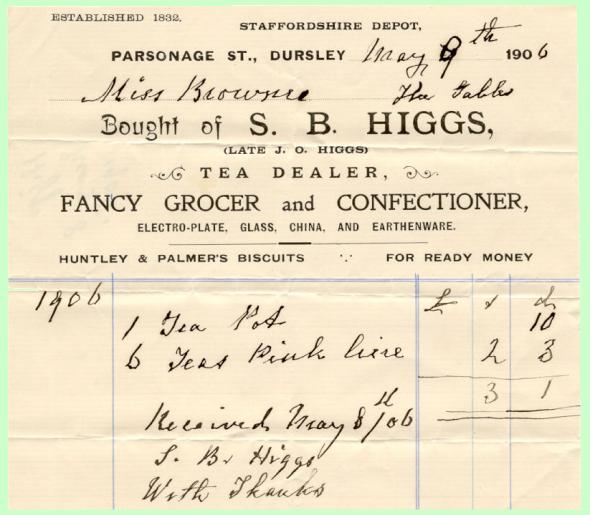 ESTABLISHED 1832.
STAFFORDSHIRE DEPOT,
PARSONAGE ST., DURSLEY May 9th 1906
Miss Browne The Gables
Bought of S. B. HIGGS,
(LATE J. O. HIGGS)
TEA DEALER,
FANCY GROCER and CONFECTIONER,
ELECTRO-PLATE, GLASS, CHINA, AND EARTHENWARE.
HUNTLEY & PALMER'S BISCUITS FOR READY MONEY
1906 £ s d
1 Tea Pot 10
6 Teas Pink line 2 3
3 1
Received May 8/06
S. B. Higgs
With Thanks